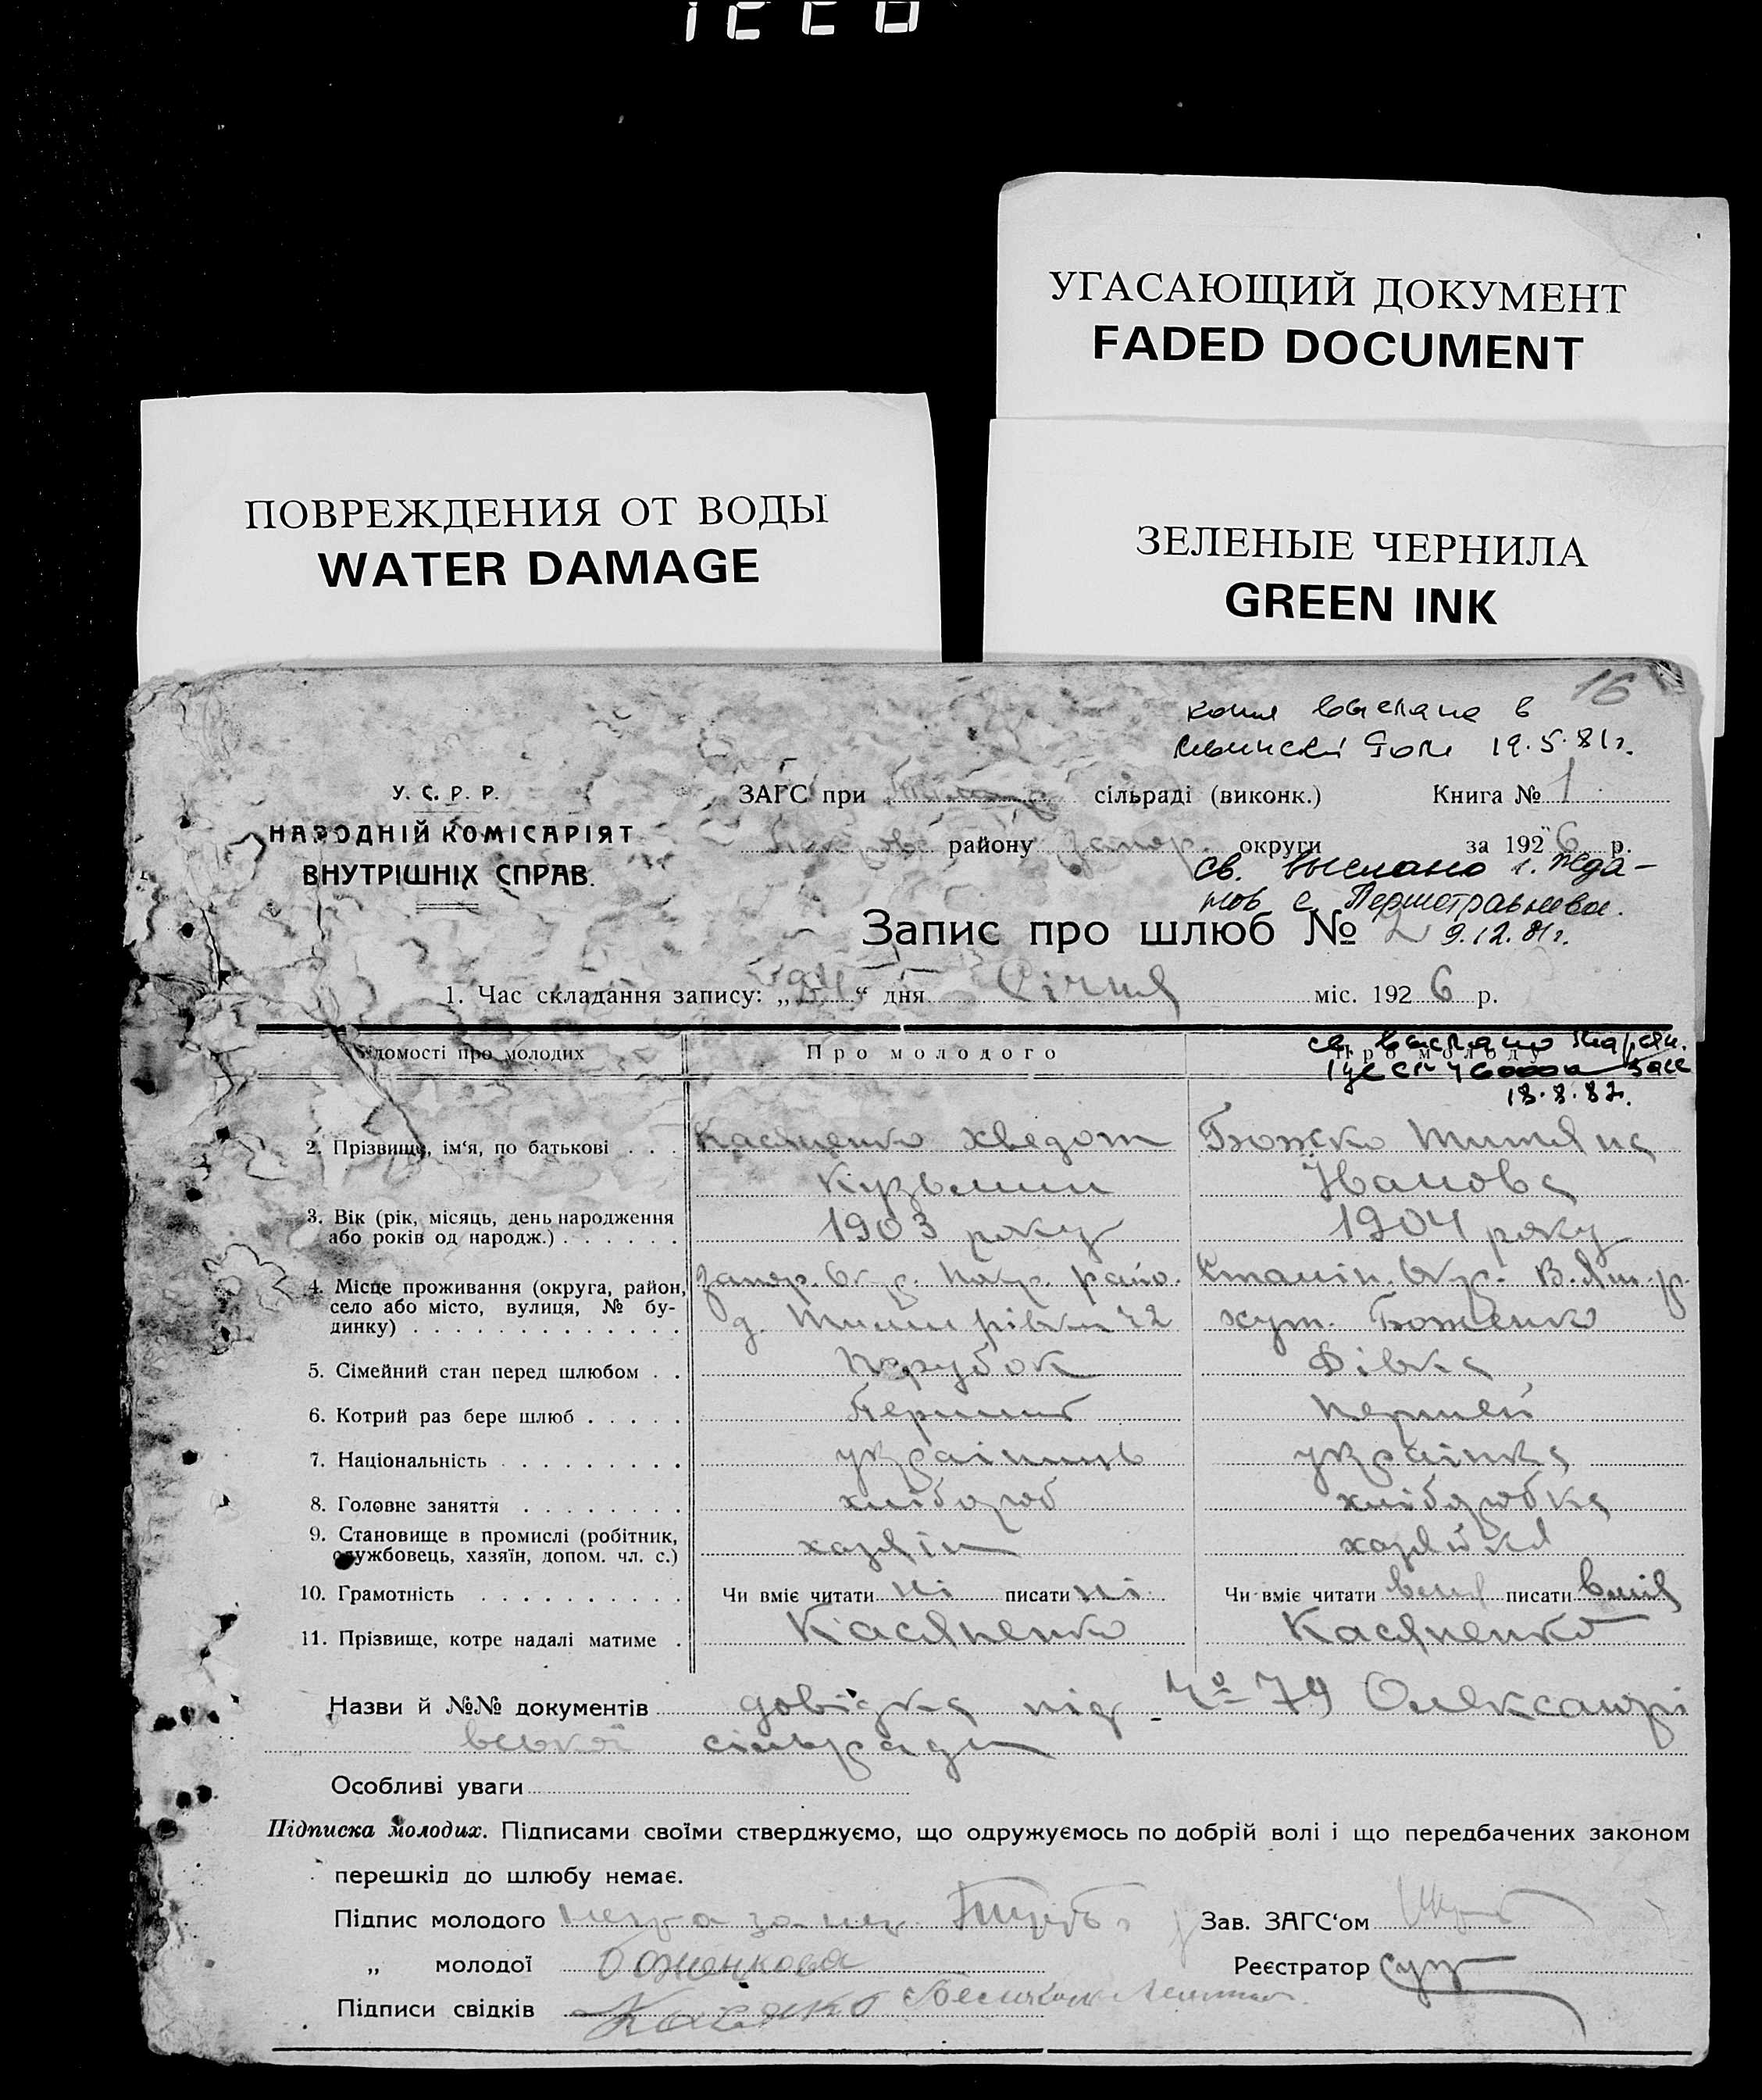 УГАСАЮЩИЙ ДОКУМЕНТ
FADED DOCUMENT
ПОВРЕЖДЕНИЯ ОТ ВОДЫ
WATER DAMAGE
ЗЕЛЕНЫЕ ЧЕРНИЛА
GREEN INK
16
копия выслана в
19.5.81г.
У. С. Р. Р.
НАРОДНІЙ КОМІСАРІЯТ
ВНУТРІШНІХ СПРАВ.
ЗАГС при сільраді (виконк.) Книга № 1
району Запор. округи за 1926 р.
св. выслано г. Жда-
нов с. Першотравневое.
9.12.81г.
Запис про шлюб № 2
1. Час складання запису: „ “ дня Січня міс. 1926 р.
св. выслано
18.8.82.
Відомості про молодих Про молодого Про молоду
2. Прізвище, ім‘я, по батькові Касяненко Хведот Божко Титяна
Кузьмин Іванова
3. Вік (рік, місяць, день народження або років од народж.) 1903 року 1904 року
4. Місце проживання (округа, район, Запор. Окр. райо. Сталін. Окр.
село або місто, вулиця, № бу- хут. Боженко
динку)
5. Сімейний стан перед шлюбом Парубок Дівка
6. Котрий раз бере шлюб Перший Першей
7. Національність українець українка
8. Головне заняття хлібороб хліборобка
9. Становище в промислі (робітник, службовець, хазяїн, допом. чл. с.) хазяін хазяйка
10. Грамотність Чи вміє читати ні писати ні Чи вміє читати вміє писати вміє
11. Прізвище, котре надалі матиме Касяненко Касяненко
Назви й №№ документів довідка під № 79 Олександрі
вської сільради
Особливі уваги
Підписка молодих. Підписами своїми стверджуємо, що одружуємось по добрій волі і що передбачених законом
перешкід до шлюбу немає.
Підпис молодого Зав. ЗАГС‘ом
„ молодої Боженкова Реєстратор
Підписи свідків